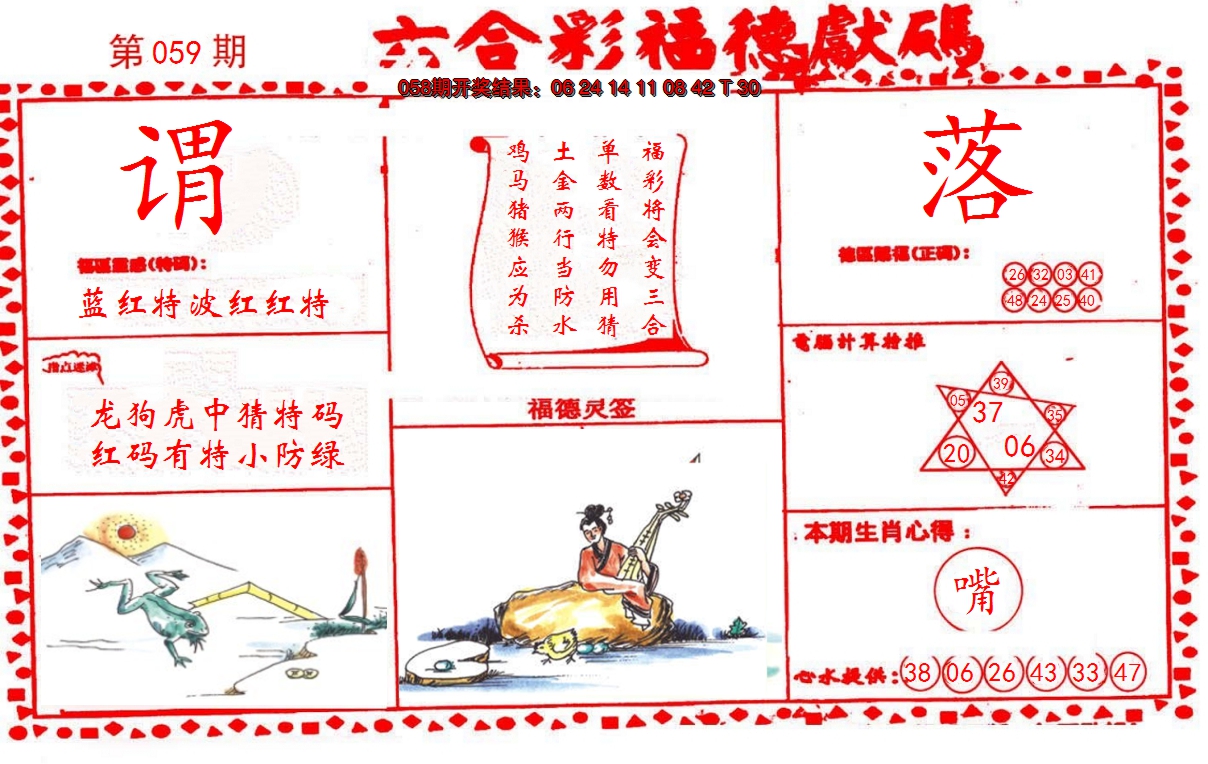 第 059 期
六合彩福德獻碼
058期开奖结果：06 24 14 11 08 42 T 30
谓
福區靈感(特碼)：
蓝红特波红红特
指点迷津
龙狗虎中猜特码
红码有特小防绿
福彩将会变三合
单数看特勿用猜
土金两行当防水
鸡马猪猴应为杀
福德灵签
落
德區賜福(正码)：
26 32 03 41
48 24 25 40
電腦计算抢推
39
05 37 35
20 06 34
42
本期生肖心得：
嘴
心水提供：38 06 26 43 33 47